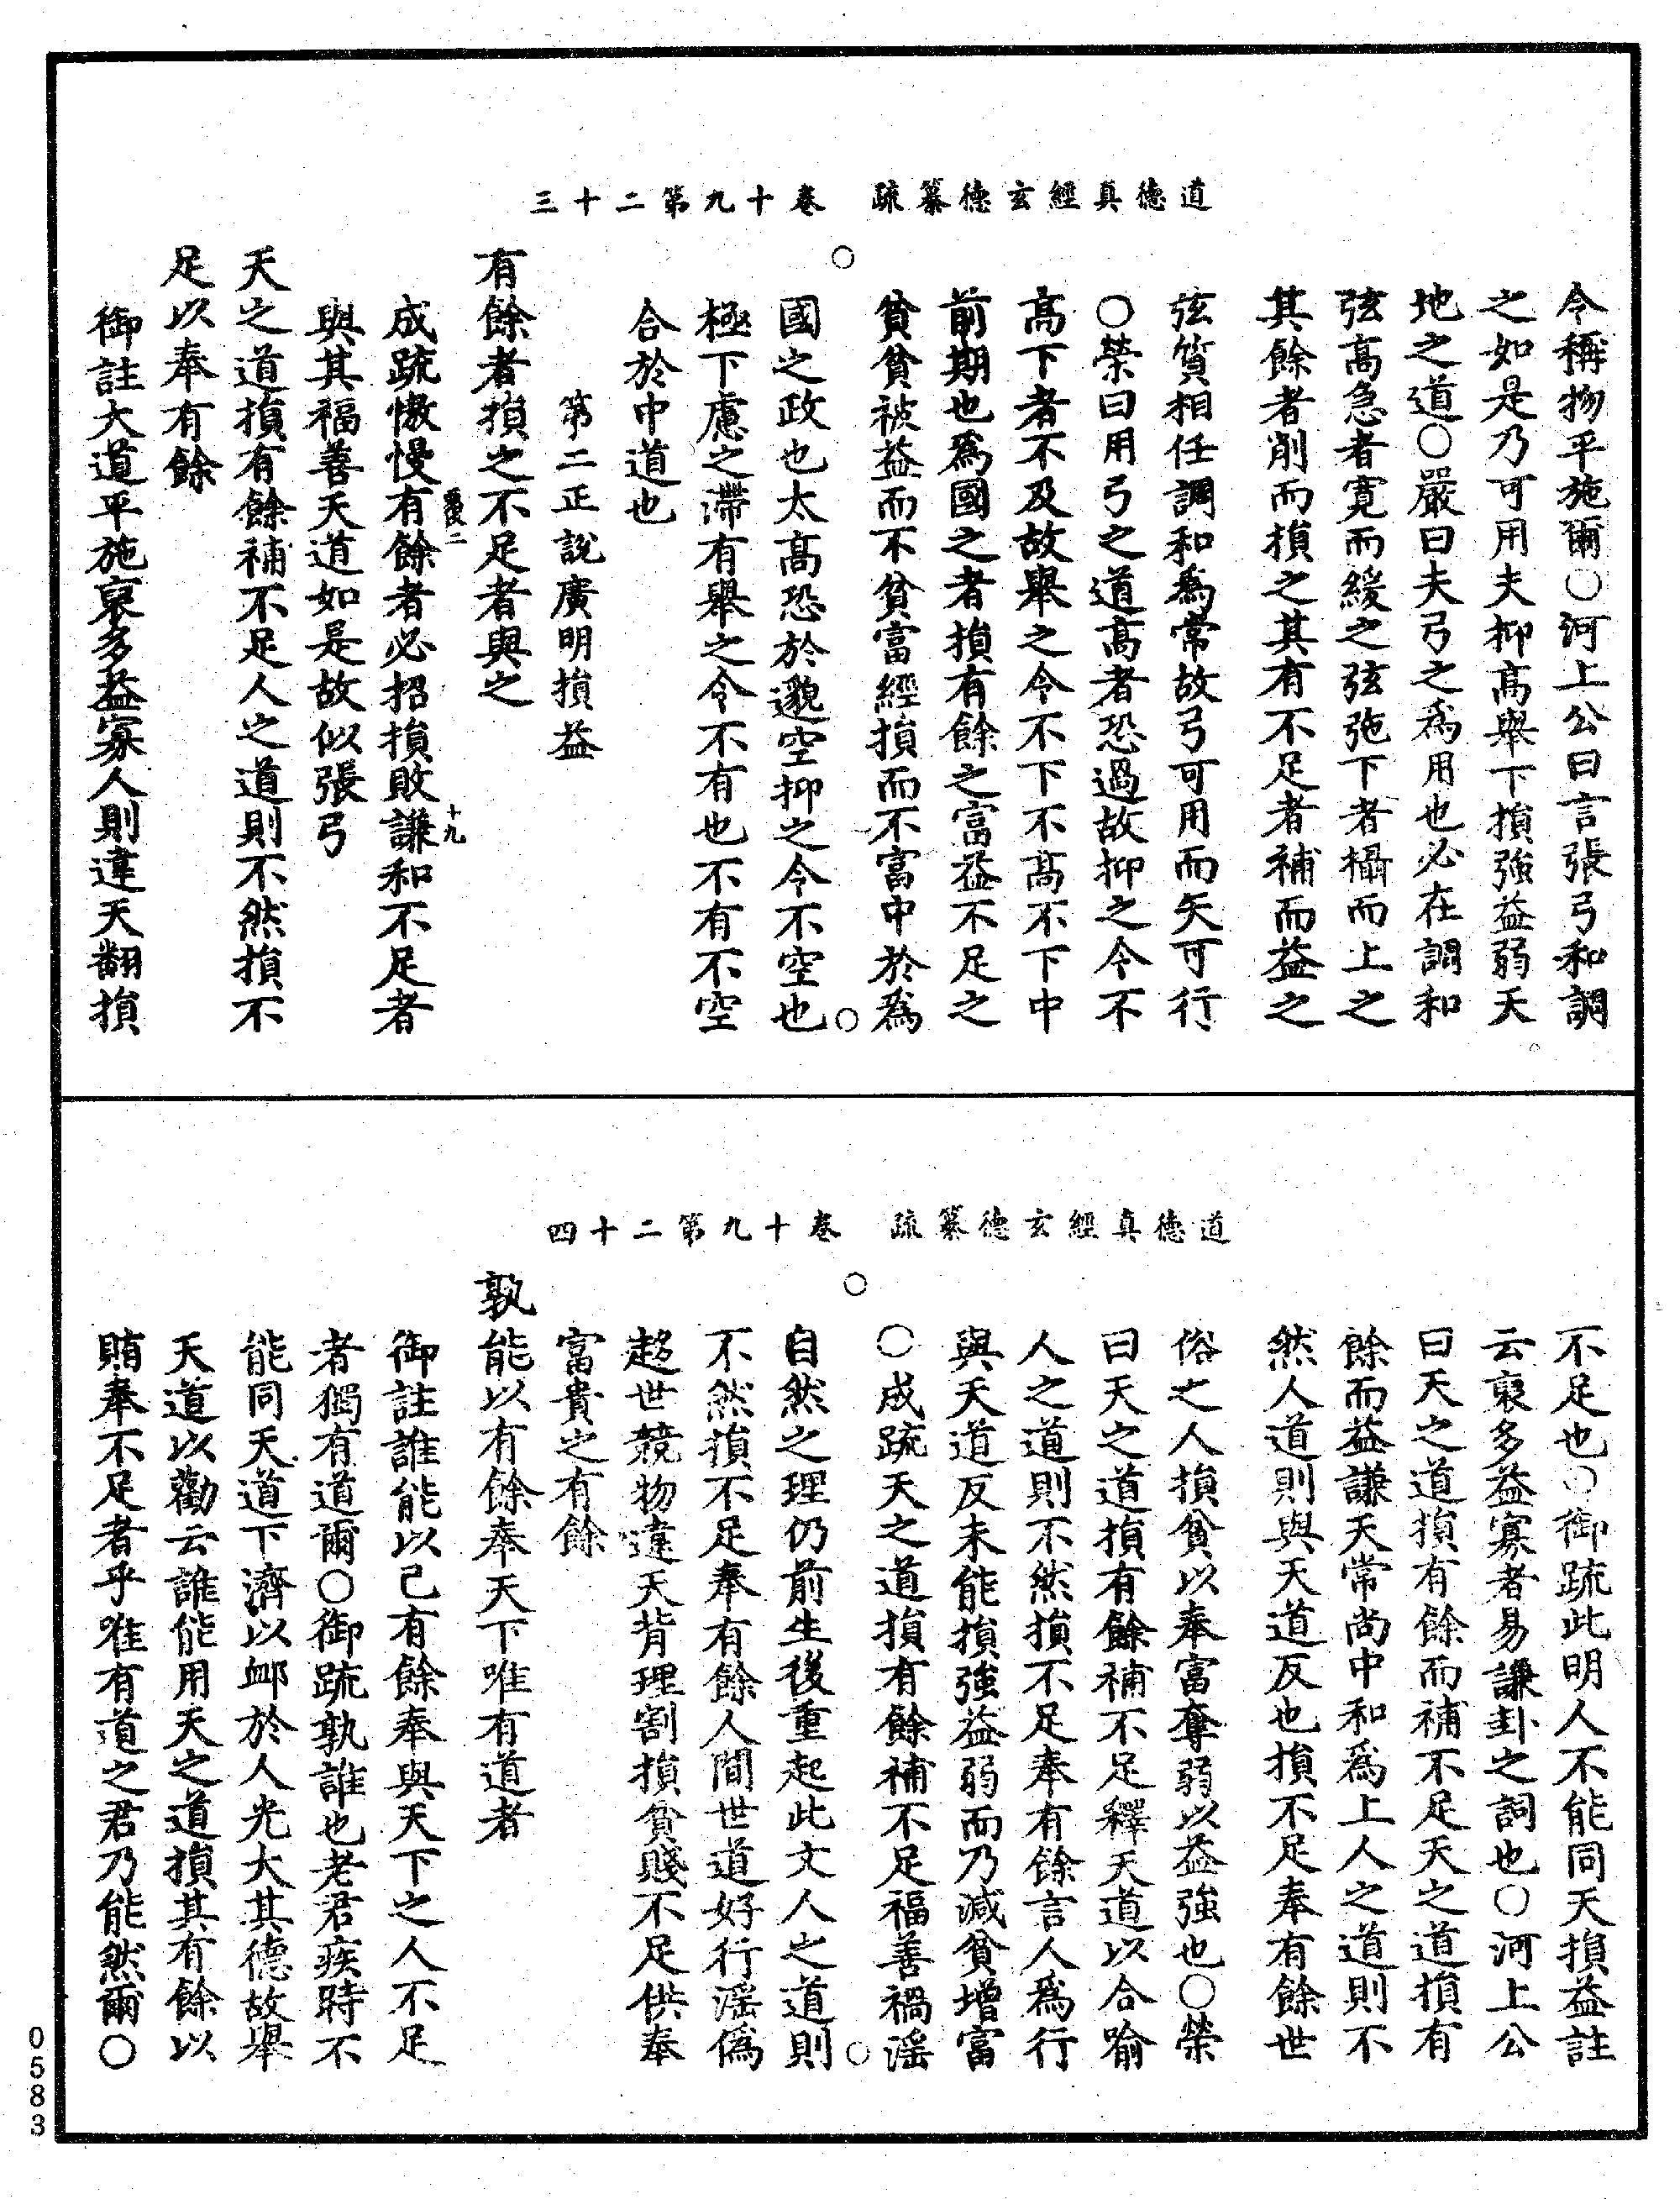 道德真經玄德纂疏　卷十九第二十三
令稱物平施爾○河上公曰言張弓和調
之如是乃可用夫抑高舉下損強益弱天
地之道○嚴曰夫弓之為用也必在調和
弦高急者寬而緩之弦弛下者攝而上之
其餘者削而損之其有不足者補而益之
弦質相任調和為常故弓可用而矢可行
○榮曰用弓之道高者恐過故抑之令不
高下者不及故舉之令不下不高不下中
前期也為國之者損有餘之富益不足之
貧貧被益而不貧富經損而不富中於為
國之政也太高恐於邈空抑之令不空也
極下慮之滯有舉之令不有也不有不空
合於中道也
第二正說廣明損益
有餘者損之不足者與之
十九
成疏慠慢有餘者必招損敗謙和不足者
與其福善天道如是故似張弓
天之道損有餘補不足人之道則不然損不
足以奉有餘
御註大道平施裒多益寡人則違天翻損
道德真經玄德纂疏　卷十九第二十四
不足也○御疏此明人不能同天損益註
云裒多益寡者易謙卦之詞也○河上公
曰天之道損有餘而補不足天之道損有
餘而益謙天常尚中和為上人之道則不
然人道則與天道反也損不足奉有餘世
俗之人損貧以奉富奪弱以益強也○榮
曰天之道損有餘補不足釋天道以合喻
人之道則不然損不足奉有餘言人為行
與天道反未能損強益弱而乃減貧增富
○成疏天之道損有餘補不足福善禍淫
自然之理仍前生後重起此文人之道則
不然損不足奉有餘人間世道好行淫偽
趍世競物違天背理割損貧賤不足供奉
富貴之有餘
孰能以有餘奉天下唯有道者
御註誰能以己有餘奉與天下之人不足
者獨有道爾○御疏孰誰也老君疾時不
能同天道下濟以卹於人光大其德故舉
天道以勸云誰能用天之道損其有餘以
賄奉不足者乎唯有道之君乃能然爾○
0583